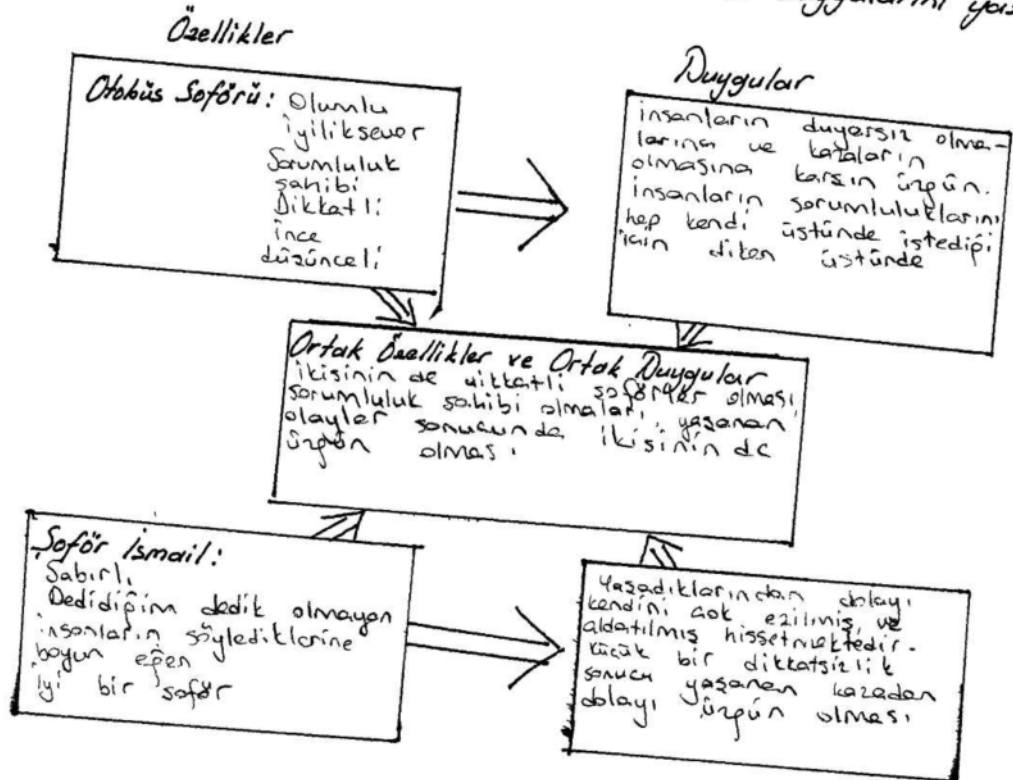 duygularını
Özellikler
Otobüs Şoförü: Olumlu
İyiliksever
Sorumluluk
sahibi
Dikkatli
ince
düşünceli
Duygular
insanların duyarsız olma-
larına ve kazaların
olmasına karşın üzgün.
insanların sorumluluklarını
hep kendi üstünde istediği
için diken üstünde
Ortak Özellikler ve Ortak Duygular
ikisinin de dikkatli şoförler olması
sorumluluk sahibi olmaları, yaşanan
olaylar sonucunda ikisinin de
üzgün olması
Şoför İsmail:
Sabırlı
Dedidiğim dedik olmayan
insanların söylediklerine
boyun eğen
iyi bir şoför
Yaşadıklarından dolayı
kendini çok ezilmiş ve
aldatılmış hissetmektedir.
küçük bir dikkatsizlik
sonucu yaşanan kazadan
dolayı üzgün olması